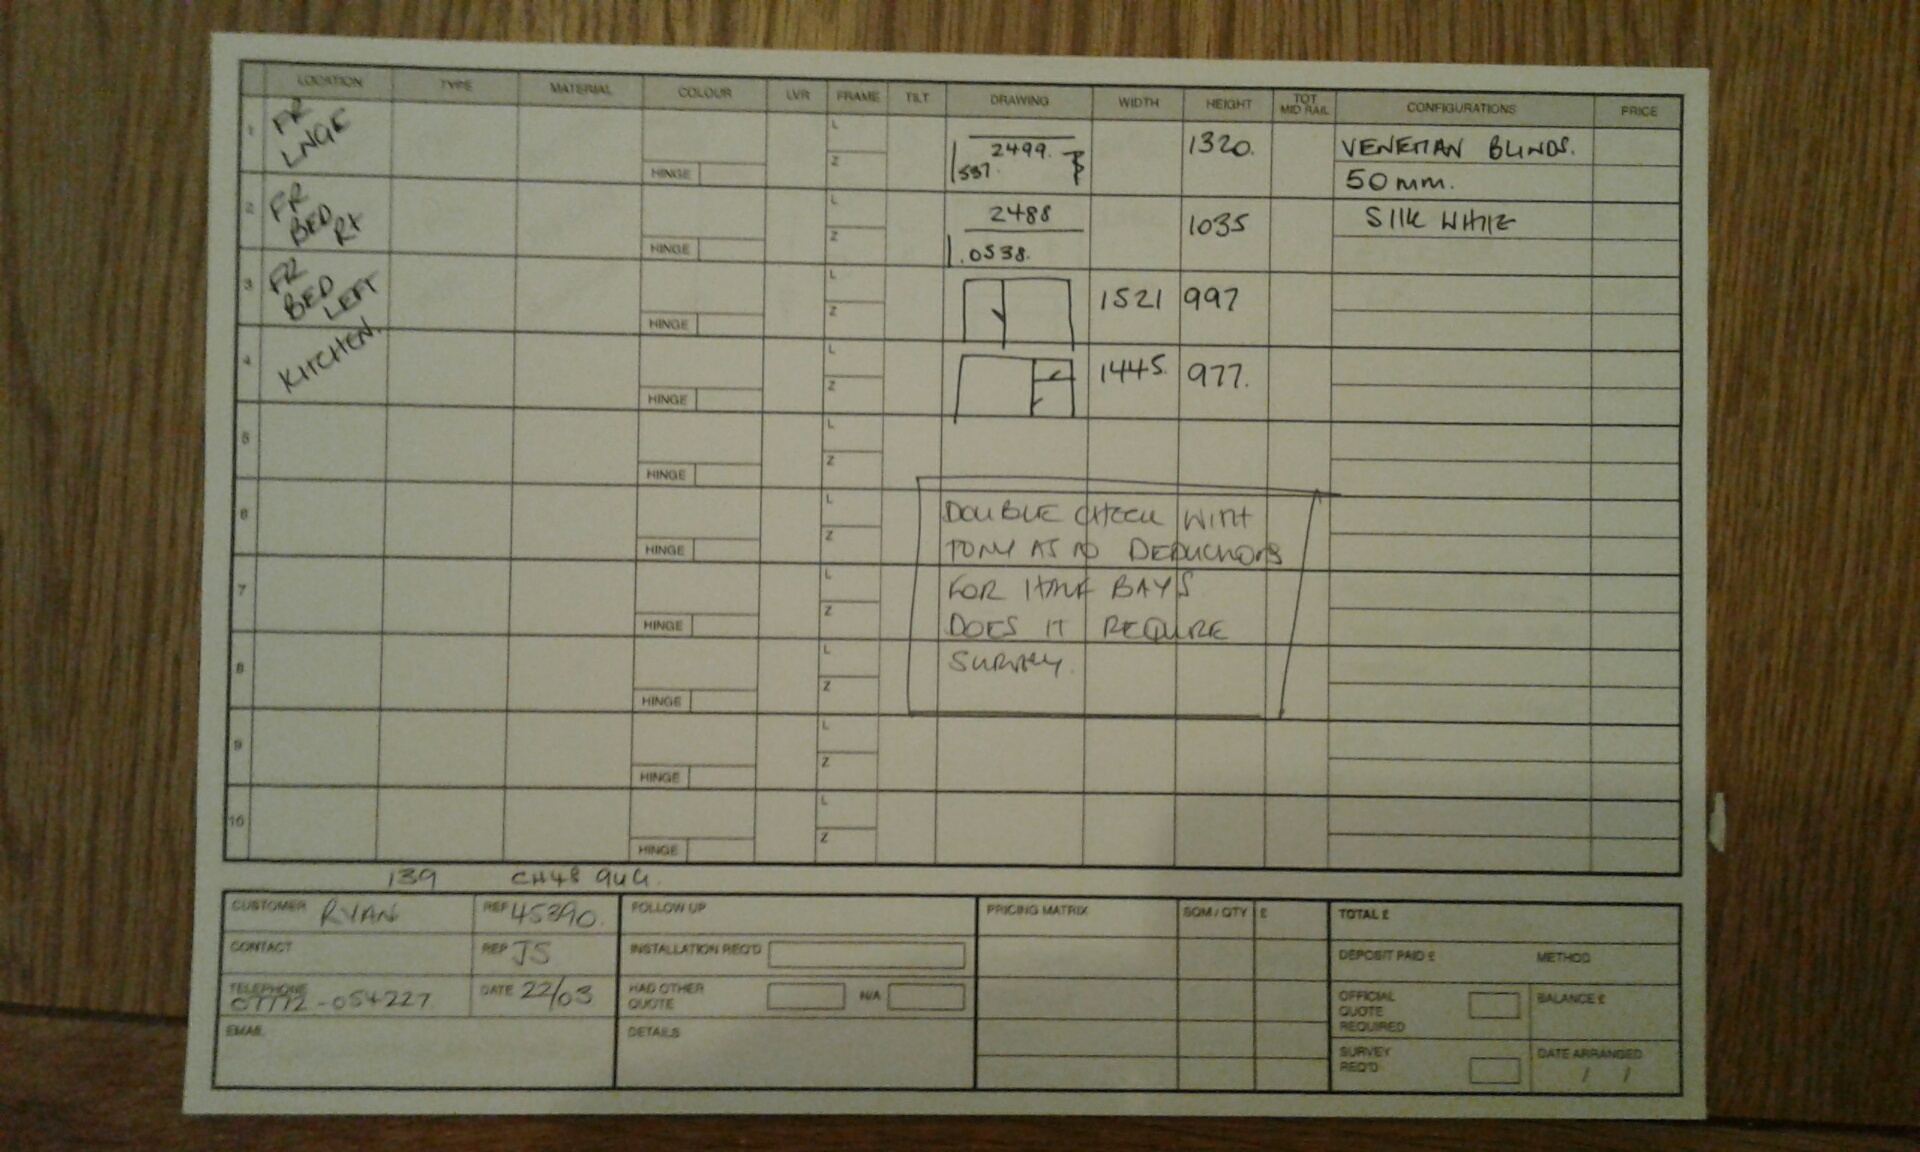 LOCATION TYPE MATERIAL COLOUR LVR FRAME TILT DRAWING WIDTH HEIGHT TOT MID RAIL CONFIGURATIONS PRICE
1 FR LNGE HINGE L Z 2499. 537. 1320. VENETIAN BLINDS.
50mm.
2 FR BED RT HINGE L Z 2488 .0538. 1035 SILK WHITE
3 FR BED LEFT HINGE L Z 1521 997
4 KITCHEN. HINGE L Z 1445. 977.
5 HINGE L Z
6 HINGE L Z
7 HINGE L Z
8 HINGE L Z
9 HINGE L Z
10 HINGE L Z
DOUBLE CHECK WITH
TONY AS TO DEDUCTIONS
FOR HALF BAYS
DOES IT REQUIRE
SURVEY.
139 CH48 9UG.
CUSTOMER RYAN REF 45390.
CONTACT REP JS
TELEPHONE 07772-054227 DATE 22/03
EMAIL
FOLLOW UP
INSTALLATION REQ'D
HAD OTHER QUOTE N/A
DETAILS
PRICING MATRIX SQM / QTY £
TOTAL £
DEPOSIT PAID £ METHOD
OFFICIAL QUOTE REQUIRED BALANCE £
SURVEY REQ'D DATE ARRANGED
/ /